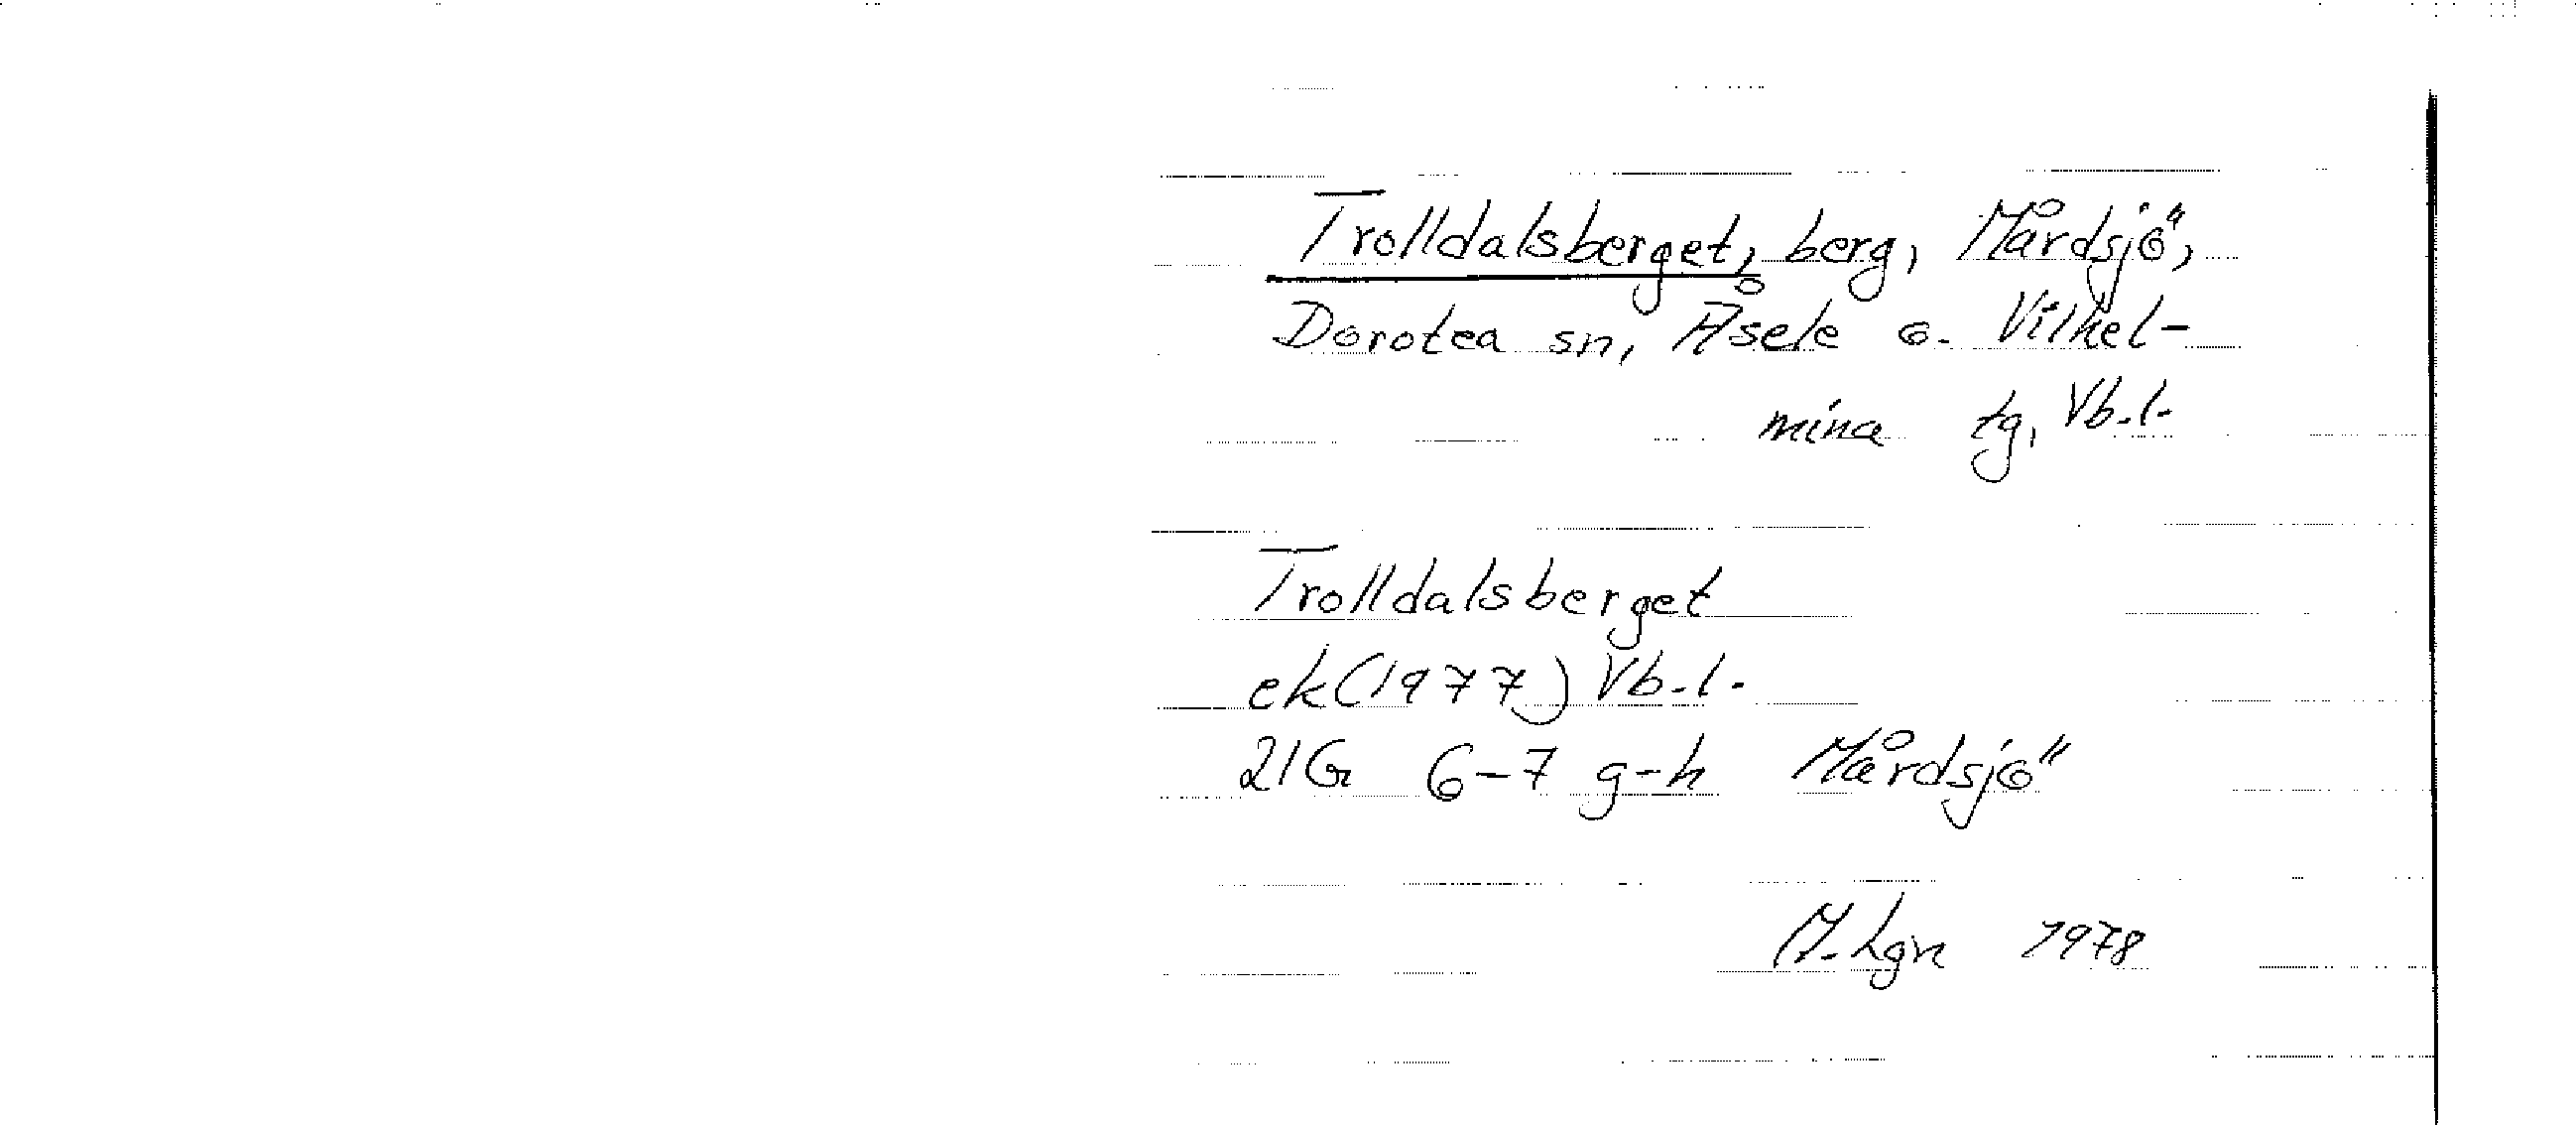 Trolldalsberget, berg, Mårdsjö,
Dorotea sn, Åsele o. Vilhel-
mina tg, Vb.l.
Trolldalsberget
ek(1977) Vb.l.
21G 6-7 g-h Mårdsjö
M.Lgn 1978